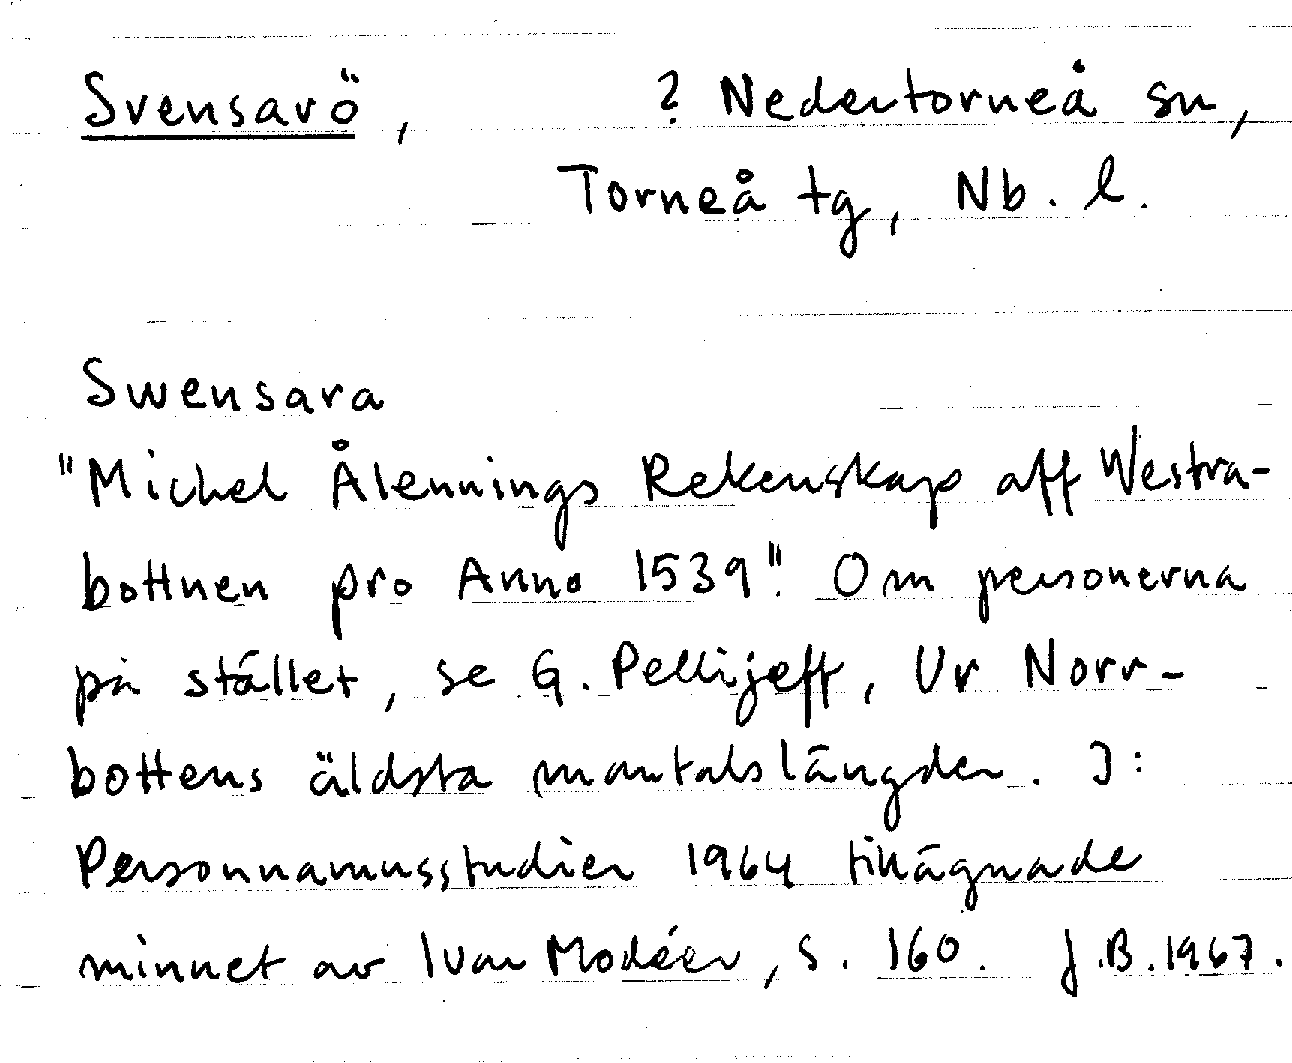 Svensarö, ? Nedertorneå sn,
Torneå tg, Nb. l.
Swensara
"Michel Ålennings Rekenskap aff Westra-
bottnen pro Anno 1539". Om personerna
på stället, se G. Pellijeff, Ur Norr-
bottens äldsta mantalslängder. I:
Personnamnsstudier 1964 tillägnade
minnet av Ivar Modéer, s. 160. J.B. 1967.